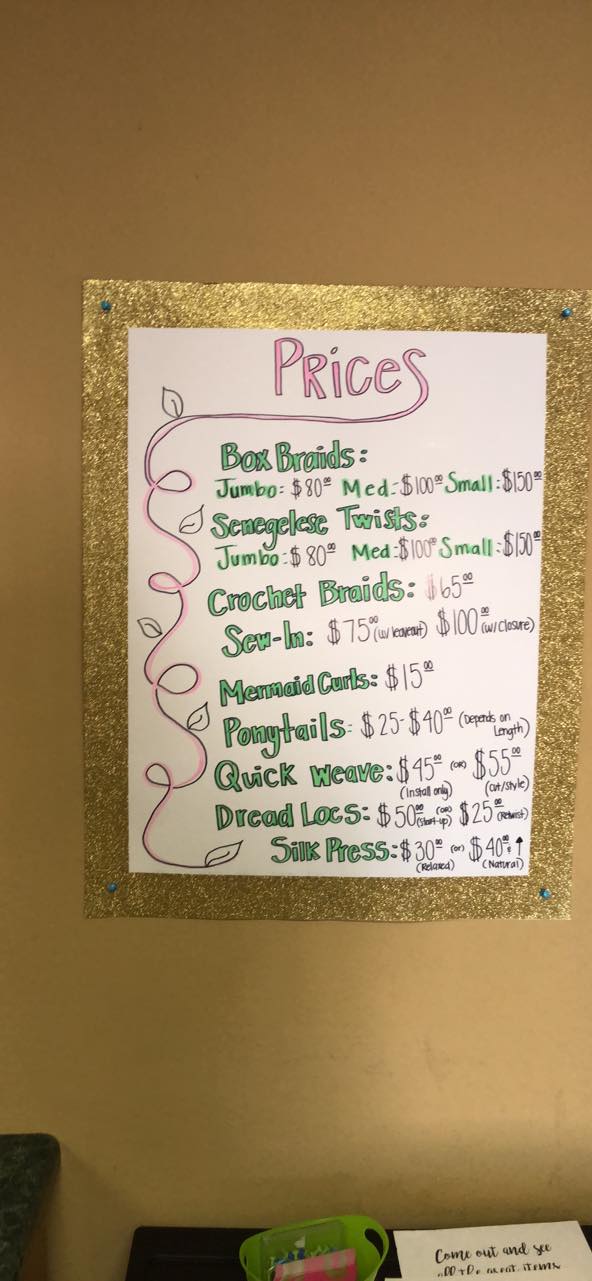 Prices
Box Braids:
Jumbo: $80⁰⁰ Med-$100⁰⁰ Small:$150⁰⁰
Senegelese Twists:
Jumbo:$80⁰⁰ Med:$100⁰⁰ Small:$150⁰⁰
Crochet Braids: $65⁰⁰
Sew-In: $75⁰⁰ (w/ leaveout) $100⁰⁰ (w/closure)
Mermaid Curls: $15⁰⁰
Ponytails: $25-$40⁰⁰ (Depends on Length)
Quick Weave: $45⁰⁰ (or) $55⁰⁰
(Install only) (cut/style)
Dread Locs: $50⁰⁰ (start-up) (or) $25⁰⁰ (Retwist)
Silk Press: $30⁰⁰ (or) $40⁰⁰ & ↑
(Relaxed) (Natural)
Come out and see
all the great items